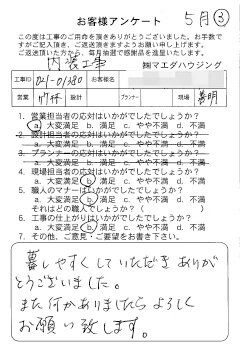 お客様アンケート 5月③
この度は工事のご用命を頂きありがとうございました。お手数で
すがご記入頂き、ご返送頂きますようお願い申し上げます。
ご返送頂いた方から、毎月抽選で感謝品を進呈いたします。
内装工事 ㈱マエダハウジング
工事ID 021-01380 お客様名
営業 竹林 設計 プランナー 現場
1. 営業担当者の応対はいかがでしたでしょうか?
a. 大変満足 b. 満足 c. やや不満 d. 不満
2. 設計担当者の応対はいかがでしたでしょうか?
a. 大変満足 b. 満足 c. やや不満 d. 不満
3. プランナーの応対はいかがでしたでしょうか?
a. 大変満足 b. 満足 c. やや不満 d. 不満
4. 現場担当者の応対はいかがでしたでしょうか?
a. 大変満足 b. 満足 c. やや不満 d. 不満
5. 職人のマナーはいかがでしたでしょうか?
a. 大変満足 b. 満足 c. やや不満 d. 不満
それはどの職人でしょうか?( )
6. 工事の仕上がりはいかがでしたでしょうか?
a. 大変満足 b. 満足 c. やや不満 d. 不満
7. その他、ご意見・ご要望をお書き下さい。
暮しやすくしていただきありが
とうございました。
また何かありましたらよろしく
お願い致します。